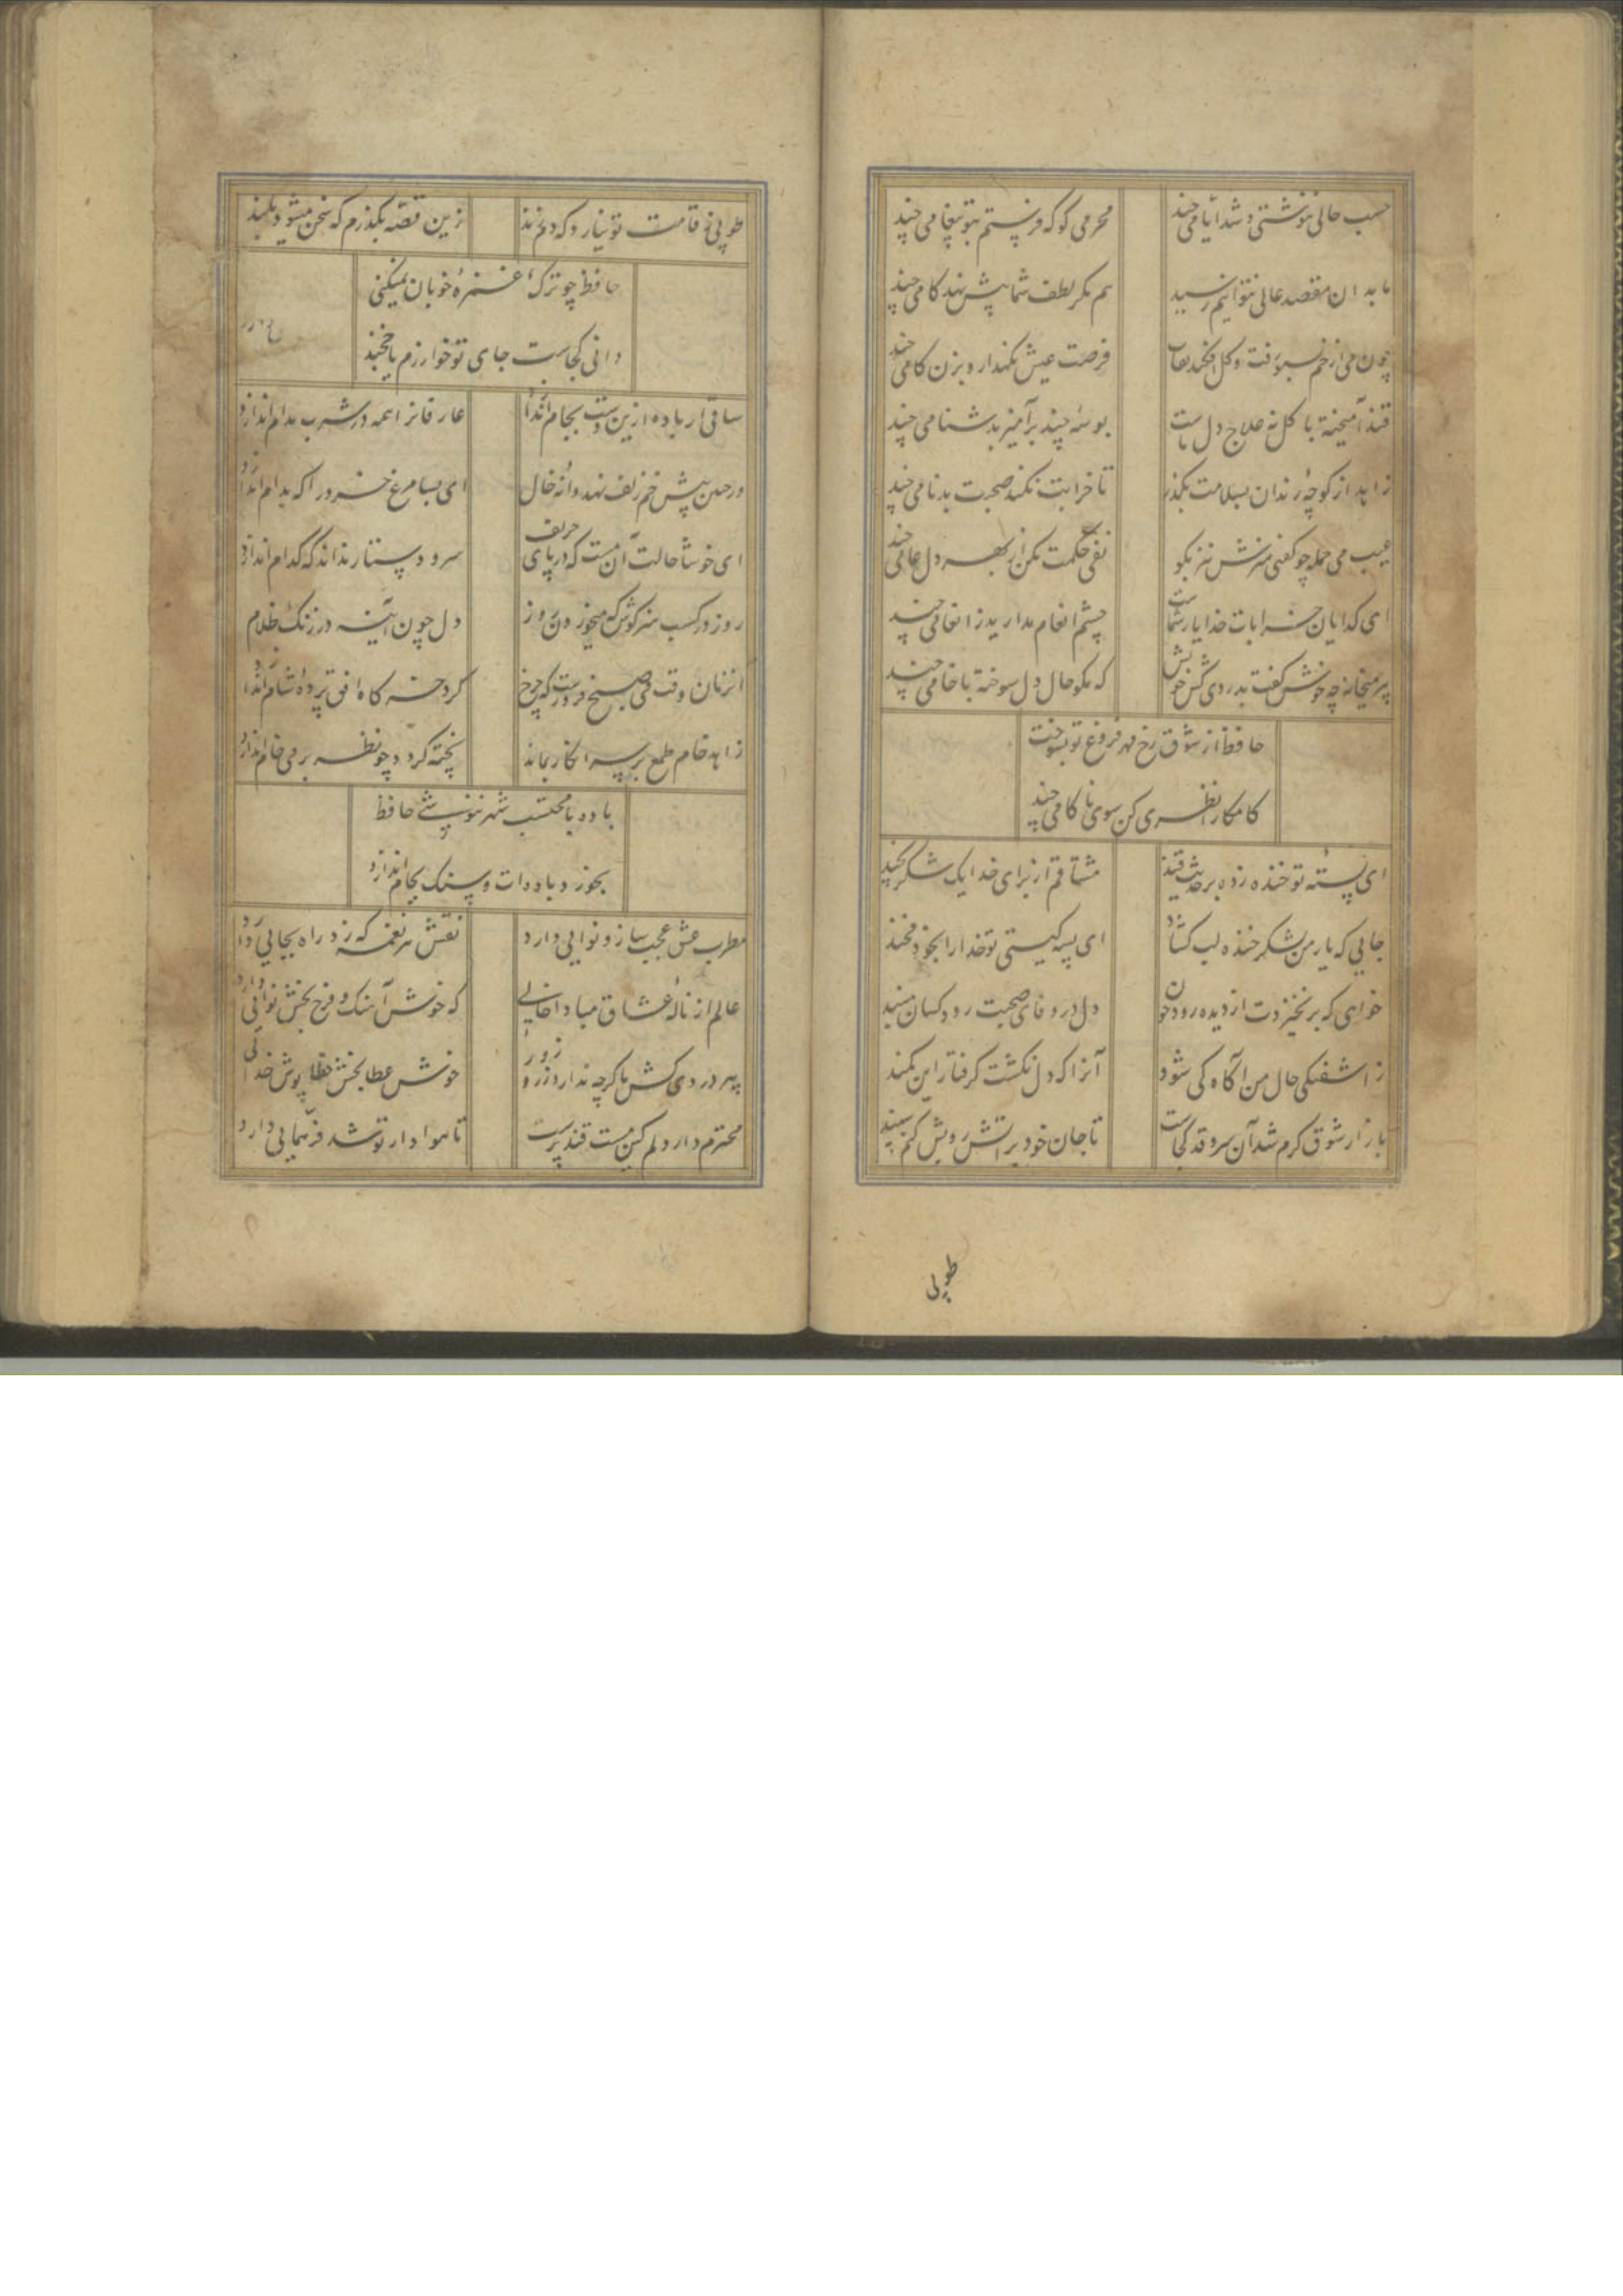 حسب حالی ننوشتی و شد ایامی چند
محرمی کو که فرستم بتو پیغامی چند
ما بدان مقصد عالی نتوانیم رسید
هم مکر لطف شما پیش نهد کامی چند
چون می از خم بسبو رفت و کل افکند نقاب
فرصت عیش نکهدار و بزن کامی چند
قند آمیخته با کل نه علاج دل ماست
بوسهٔ چند برآمیز بدشنامی چند
زاهد از کوچهٔ رندان بسلامت بکذر
تا خرابت نکند صحبت بدنامی چند
عیب می جمله چو کفتی هنرش نیز بکو
نفی حکمت مکن از بهر دل عامی چند
ای کدایان خرابات خدا یار شماست
چشم انعام مدارید ز انعامی چند
پیر میخانه چه خوش کفت بدردی کش خویش
که مکو حال دل سوخته با خامی چند
حافظ از شوق رخ مهر فروغ تو بسوخت
کامکارا نظری کن سوی ناکامی چند
ای پستهٔ تو خنده زده بر حدیث قند
مشتاقم از برای خدا یک شکر بخند
جایی که یار من بشکر خنده لب کشاد
ای پسته کیستی تو خدا را بخود مخند
خواهی که بر نخیزدت از دیده رود خون
دل در وفای صحبت رود کسان مبند
ز آشفتکی حال من آکاه کی شود
آنرا که دل نکشت کرفتار این کمند
بازار شوق کرم شد آن سرو قد کجاست
تا جان خود بر آتش رویش کنم سپند
طوبی
طوبی ز قامت تو نیارد که دم زند
زین قصه بکذرم که سخن میشود بلند
حافظ چو ترک غمزهٔ خوبان نمیکنی
دانی کجاست جای تو خوارزم یا خجند
ساقی ار باده ازین دست بجام اندازد
عارفانرا همه در شرب مدام اندازد
ور چنین پیش خم زلف نهد دانهٔ خال
ای بسا مرغ خرد را که بدام اندازد
ای خوشا حالت آن مست که در پای حریف
سر و دستار نداند که کدام اندازد
روز در کسب هنر کوش که می خوردن روز
دل چون آینه در زنک ظلام
آنزمان وقت می صبح فروزست که چرخ
کرد خرکاه افق پردهٔ شام اندازد
زاهد خام طمع بر سر انکار بماند
پخته کردد چو نظر بر می خام اندازد
باده با محتسب شهر ننوشی حافظ
بخورد بادهات و سنک بجام اندازد
مطرب عشق عجب ساز و نوایی دارد
نقش هر نغمه که زد راه بجایی دارد
عالم از نالهٔ عشاق مبادا خالی
که خوش آهنک و فرح بخش نوایی دارد
پیر دردی کش ما کرچه ندارد زر و زور
خوش عطا بخش خطا پوش خدایی
محترم دار دلم کین مکس قند پرست
تا هوادار تو شد فر همایی دارد